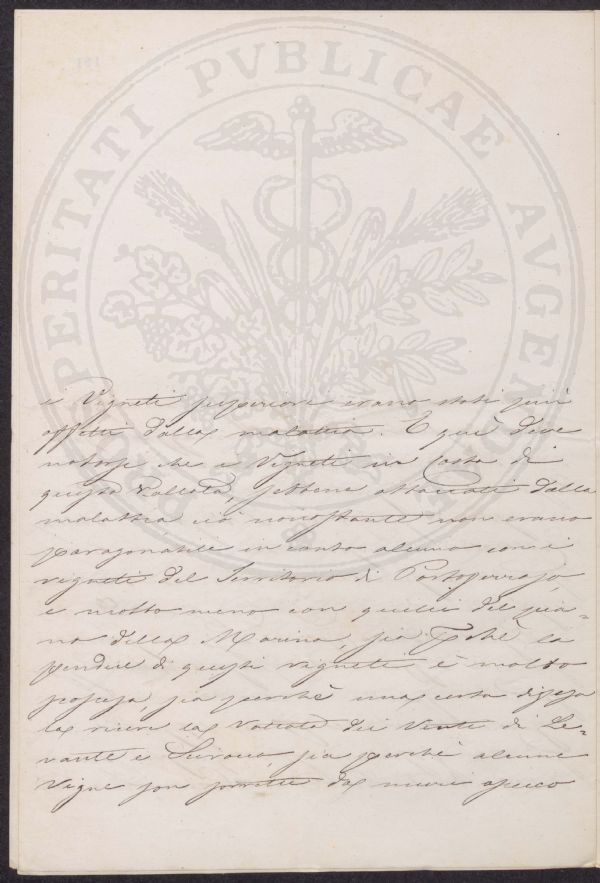 i Vigneti superiori erano stati più
affetti dalla malattia. E qui deve
notarsi che i Vigneti in Costa di
questa Vallata, sebbene attaccati dalla
malattia ciò nonostante non erano
paragonabili in conto alcuno con i
vigneti del Territorio di Portoferrajo,
e molto meno con quelli del pia=
no della Marina, sia perchè la
pendice di questi vigneti è molto
scoscesa, sia perchè una certa difesa
la riceve la Vallata dei Venti di Le=
vante e Scirocco, sia perchè alcune
Vigne son sorrette da muri a secco